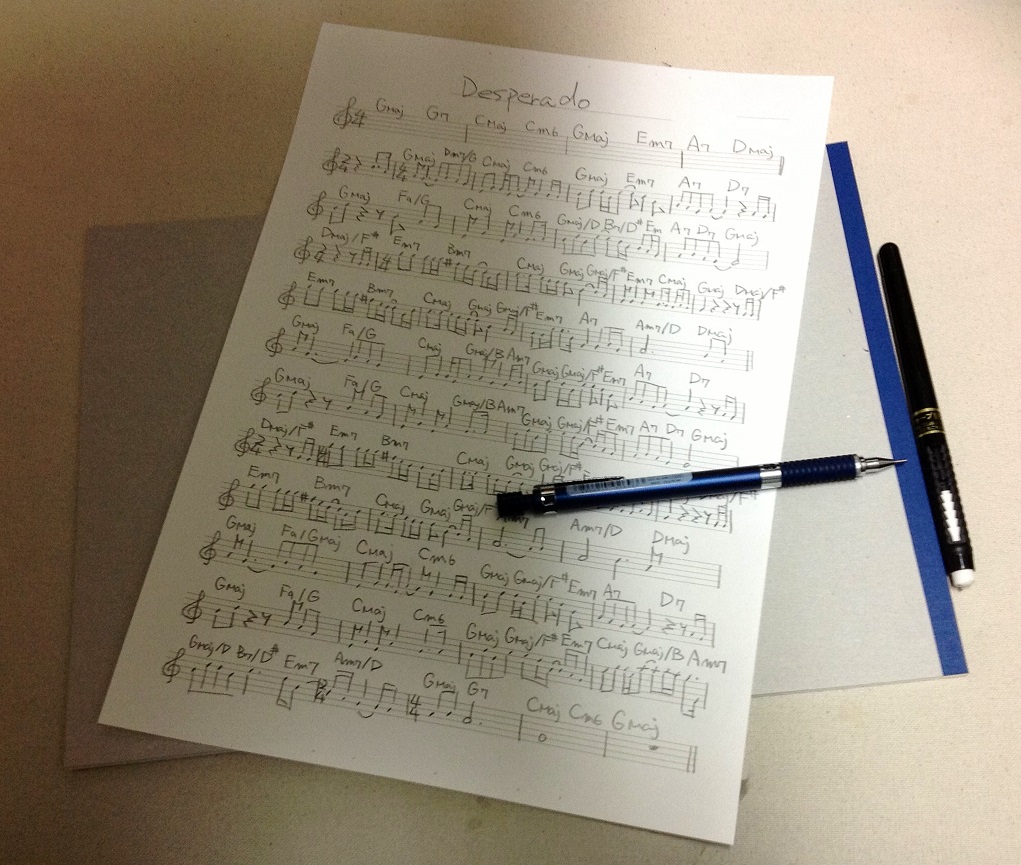 Desperado
GMaj G7 CMaj Cm6 GMaj Em7 A7 DMaj
4 4
GMaj Dm7/G CMaj Cm6 GMaj Em7 A7 D7
GMaj F9/G CMaj Cm6 GMaj/D B7/D# Em A7 D7 GMaj
DMaj/F# Em7 Bm7 CMaj GMaj GMaj/F# Em7 CMaj GMaj DMaj/F#
Em7 Bm7 CMaj GMaj GMaj/F# Em7 A7 Am7/D DMaj
GMaj F9/G CMaj GMaj/B Am7 GMaj GMaj/F# Em7 A7 D7
GMaj F9/G CMaj GMaj/B Am7 GMaj GMaj/F# Em7 A7 D7 GMaj
DMaj/F# Em7 Bm7 CMaj GMaj GMaj/F#
Em7 Bm7 CMaj GMaj Am7/D DMaj
GMaj F9/GMaj CMaj Cm6 GMaj GMaj/F# Em7 A7 D7
GMaj F9/G CMaj Cm6 GMaj GMaj/F# Em7 CMaj GMaj/B Am7
GMaj/D B7/D# Em7 Am7/D GMaj G7 CMaj Cm6 GMaj
4 4